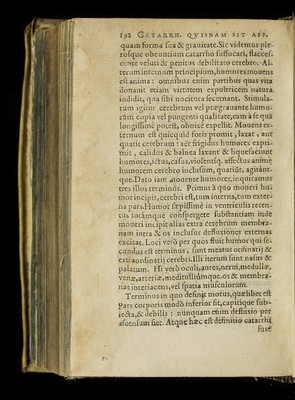 192 CATARRH. QVISNAM SIT AFF.
quam forma sua & grauitate. Sic videmus ple-
rosque obeuntium catarrho suffocari, flacces-
cente veluti & penitus debilitato cerebro. Al-
terum internum principium, humores mouens
est anima: omnibus enim partibus quas vita
donauit etiam virtutem expultricem natura
indidit, qua sibi nocitura secernant. Stimula-
tum igitur cerebrum vel prægrauante humo-
rum copia vel pungenti qualitate, eam à se quā
longissimè potest, obnixè expellit. Mouens ex-
ternum est quicquid foris promit, laxat, aut
quatit cerebrum: aër frigidus humores expri-
mit, calidus & balnea laxant & liquefaciunt
humores, ictus, casus, violentiq. affectus animę
humorem cerebro inclusum, quatiūt, agitant-
que. Dato iam mouente humores, inquiramus
tres illos terminos. Primus à quo moueri hu-
mor incipit, cerebri est, tum interna, tum exter-
na pars. Humor sæpissimè in ventriculis reten-
tus totámque conspergete substantiam inde
moueri incipit alias extra cerebrum membra-
nam intra & os inclusus defluxiones externas
excitat. Loci verò per quos fluit humor qui se-
cundus est terminus, sunt meatus ordinarij &
extraordinarij cerebri. Illi iterum sunt nasus &
palatum. Hi verò oculi, aures, nerui, medullæ,
venæ, arteriæ, meditulliúmque. os & membra-
nas interiacens, vel spatia musculorum.
Terminus in quo desinit motus, quælibet est
pars corporis modò inferior sit, capitíque sub-
iecta, & debilis: nunquam enim defluxio per
ascensum fiet. Atque hæc est definitio catarrhi
fusè